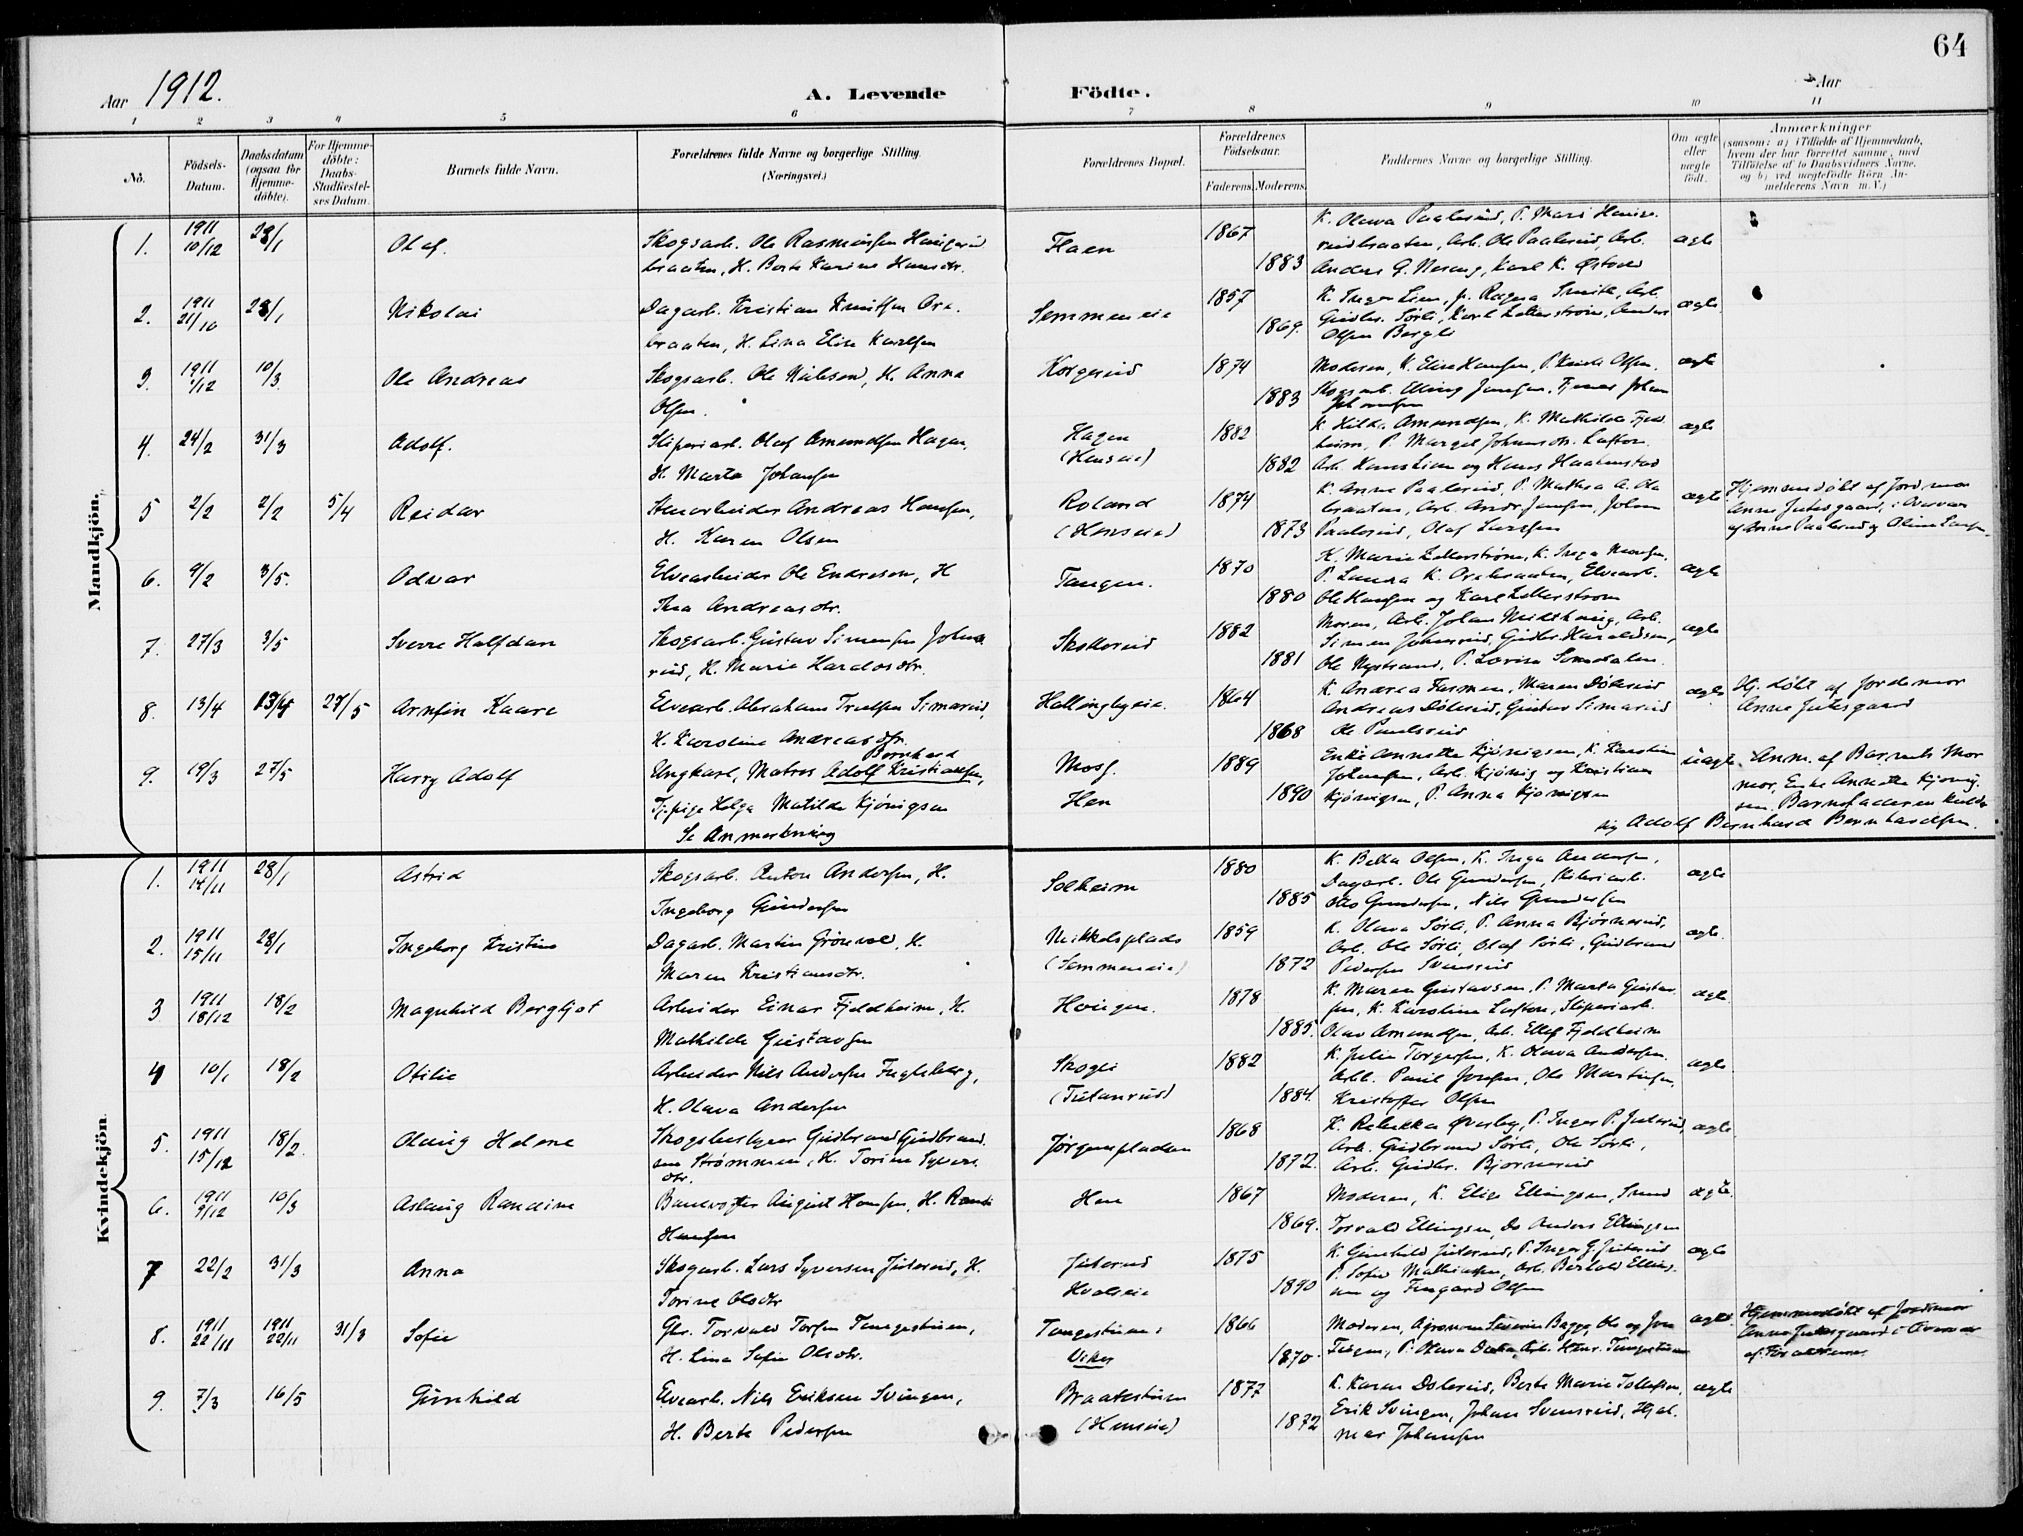 64
Aar 1912.
A. Levende Födte.
Aar
1 2 3 4 5 6 7 8 9 10 11
Nó.
Födsels-Datum.
Daabsdatum (ogsaa for Hjemme-döbte).
For Hjemme-döbte: Daabs-Stadfestel-ses Datum.
Barnets fulde Navn.
Forældrenes fulde Navne og borgerlige Stilling. (Næringsvei.)
Forældrenes Bopæl.
Forældrenes Födselsaar.
Faderens. Moderens.
Faddernes Navne og borgerlige Stilling.
Om ægte eller uægte födt.
Anmærkninger
(saasom: a) i Tilfælde af Hjemmedaab, hvem der har forrettet samme, med Tilföielse af to Daabsvidners Navne. og b) ved uægtefödte Börn An-melderens Navn m. V.)
Mandkjön.
1. 1911 10/12 28/1 Olaf. Skogsarb. Ole Rasmussen Haugerud
braaten, H. Berte Karine Hansdtr. Flaen 1867 1883
K. Olava Paalsrud, P. Mari Hauge-
rudbraaten, Arb. Ole Paalsrud, Arb.
Anders G. Nerang, Karl K. Østvold ægte
2. 1911 21/10 28/1 Nikolai Dagarb. Kristian Knutsen Ora-
braaten, H. Lina Elise Karlsen Semmeneie 1857 1869.
K. Inger Lien, Fr. Ragna Smith, Arb.
Gudbr. Sørli, Karl Zetterstrøm, Anders
Olsen Bergli ægte
3. 1911 1/12 10/3 Ole Andreas Skogsarb. Ole Nilsen, H. Anna
Olsen. Korgerud 1874 1883
Moderen, K. Elise Hansen, P. Olsen.
Skogsarb. Elling Jensen, Johan
Johansen ægte
4. 24/2 31/3 Adolf. Sliperiarb. Olaf Amundsen Hagen,
H. Marta Johansen Hagen
(Henseie) 1882 1882
K. Hilda Amundsen, K. Mathilde Fjeld
heim, P. Margit Johansdtr. Luften.
Arb. Hans Lien og Hans Haakenstad ægte
5 2/2 2/2 5/4 Reidar Stenarbeider Andreas Hansen,
H. Karen Olsen Roland
(Henseie) 1874 1873
K. Anna Paalsrud, P. Mathea A. Ora
braaten, Arb. Andr. Jensen, Johan
Paalsrud, Olaf Larsen ægte
Hjemmedøbt af Jordmor
Anne Julsgaard, i Overvær
af Anne Paalsrud og Oline Larsen
6. 9/2 3/5. Odvar Elvearbeider Ole Endresen, H
Thea Andreasdtr. Tangen. 1870 1880
K. Marie Zetterstrøm, K. Inga Hansen,
P. Laura K. Orabraaten, Elvearb.
Ole Hansen og Karl Zetterstrøm ægte
7. 27/3 3/5 Sverre Halfdan Skogsarb. Gustav Simensen Johns
rud, H. Marie Haraldsdtr. Skollerud 1882 1881
Moren, Arb. Johan Midthaug, Arb.
Simen Johnsrud, Gudbr. Haraldsen,
Ole Nystrand, P. Lovise Somdalen. ægte
8. 13/4 13/4 27/5 Arnfin Kaare Elvearb. Abraham Truelsen Simarud,
H. Karoline Andreasdtr. Hallingbyeie. 1864 1868
K. Andrea Tasmen, Maren Dølerud
Andreas Dølerud, Gustav Simarud
Ole Paulsrud ægte
Hj. døbt af Jordemor
Anne Julsgaard
9. 19/3 27/5 Harry Adolf Ungkarl, Matros Adolf Bernhard Kristiansen,
Tj.pige Helga Matilde Kjönigsen
Se Anmerkning Moss.
Hen 1889 1890
Enke Annette Kjönigsen, K. Karoline
Johansen, Arb. Kjönig og Kristian
Kjönigsen, P. Anna Kjönigsen uægte
Anm. af Barnets Mor
mor, Enke Annette Kjönig-
sen. Barnefaderen kalder
sig Adolf Bernhard Bernhardsen.
Kvindekjön
1. 1911 14/11 28/1 Astrid Skogsarb. Anton Andersen, H.
Ingeborg Gundersen Solheim 1880 1885
K. Bella Olsen, K. Inga Andersen,
Dagarb. Ole Gundersen, Sliberiarb.
Otto Gundersen, Nils Gundersen ægte
2. 1911 15/11 28/1 Ingeborg Kristine Dagarb. Martin Grönvold, H.
Maren Kristiansdtr. Nikkelsplads
(Semmeneie) 1859 1872
K. Olava Sørli, P. Anna Bjørnerud,
Arb. Ole Sørli, Olaf Sørli, Gudbrand
Pedersen Svensrud ægte.
3 1911 18/12 18/2 Magnhild Bergljot Arbeider Einar Fjeldheim, H.
Mathilde Gustavsen Haugen. 1878 1885.
K. Maren Gustavsen, P. Marta Gustav-
sen, K. Karoline Luften, Sliperiarb.
Olav Amundsen, Arb. Ellef Fjeldheim ægte
4 10/1 18/2 Otilie Arbeider Nils Andersen Fugleberg,
H. Olava Andersen Skogli
(Tutanrud) 1882 1884.
K. Julie Torgersen, K. Olava Andersen.
Arb. Paul Josefsen, Ole Martinsen,
Kristoffer Olsen ægte
5. 1911 15/12 18/2. Olaug Helene Skogsbestyrer Gudbrand Gudbrand-
sen Strømmen, H. Torine Syvers
dtr. Jørgenspladsen 1868 1872.
K. Rebekka Øverby, P. Inger P. Juterud,
Arb. Gudbrand Sørli, Ole Sørli,
Arb. Gudbr. Bjørnerud ægte
6. 1911 9/12 10/3 Aslaug Randine Banevogter August Hansen, H. Randi
Hansen Hen 1867 1869.
Moderen, K. Elise Ellingsen, Smed
Torvald Ellingsen, Do Anders Ellingsen ægte.
7 22/2 31/3 Anna Skogarb. Lars Syversen Juterud, H.
Torine Olsdtr Juterud
Hvalseie 1875 1890
K. Gunhild Juterud, P. Inger G. Juterud
P. Sofie Mathiassen, Arb. Bertold Elling-
sen og Fingard Olsen ægte
8. 1911 22/11 1911 22/11 31/3 Sofie Gbr. Torvald Torsen Tangestuen,
H. Lina Sofie Olsdtr. Tangestuen
Viker 1866 1870.
Moderen, Agronom Severin Bagge, Ole og Iver
Tangen, P. Olava Arb. Tangestuen ægte.
Hjemmedøbt af Jordmor
Anne Julsgaard i Overvær
af Forældrene
9. 7/3 16/5 Gunhild Elvearb. Nils Eriksen Svingen,
H. Berte Pedersen Braatestuen
(Henseie) 1877 1872
K. Karen Dølerud, Berte Marie Tollefsen,
Erik Svingen, Johan Svensrud, Hjal-
mar Johansen ægte